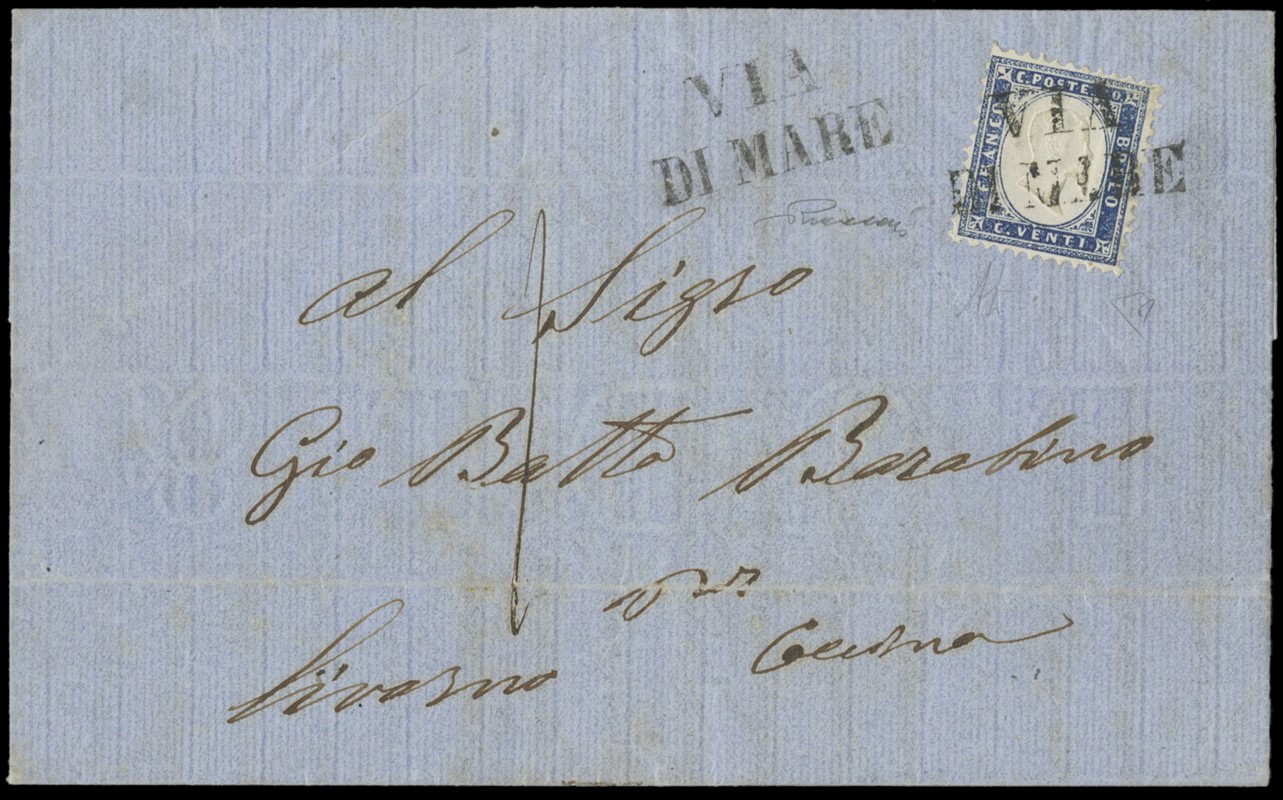 VIA
DI MARE
C. POSTE 20
FRANCO
BOLLO
C. VENTI
VIA
DI MARE
al Sigro
Gio Batta Barabino
Livorno
Per
Cecina